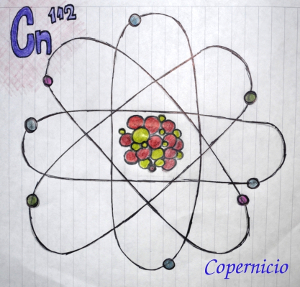 Cn¹¹²
Copernicio